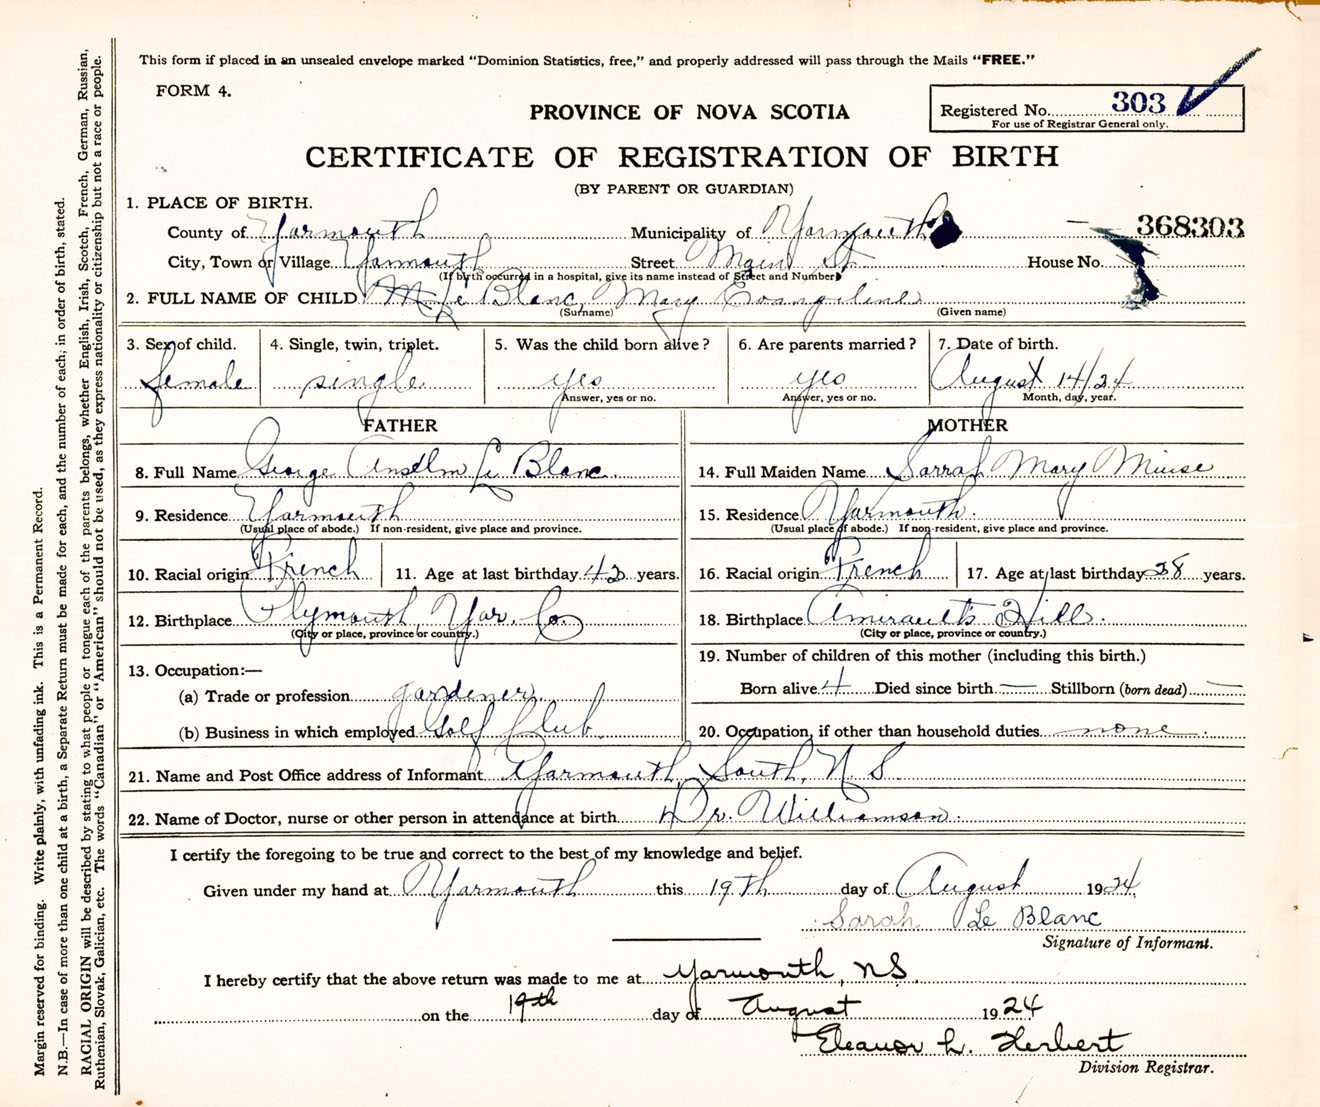 This form if placed in an unsealed envelope marked "Dominion Statistics, free," and properly addressed will pass through the Mails "FREE."
FORM 4.
PROVINCE OF NOVA SCOTIA
Registered No. 303
For use of Registrar General only.
CERTIFICATE OF REGISTRATION OF BIRTH
(BY PARENT OR GUARDIAN)
1. PLACE OF BIRTH.
368303
County of Yarmouth Municipality of Yarmouth
City, Town or Village Yarmouth Street Main St. House No.
(If birth occurred in a hospital, give its name instead of Street and Number)
2. FULL NAME OF CHILD Le Blanc, Mary Evangeline
(Surname) (Given name)
3. Sex of child. 4. Single, twin, triplet. 5. Was the child born alive? 6. Are parents married? 7. Date of birth.
female single yes yes August 14/24
Answer, yes or no. Answer, yes or no. Month, day, year.
FATHER MOTHER
8. Full Name George Anselm Le Blanc 14. Full Maiden Name Sarrah Mary Miuse
9. Residence Yarmouth 15. Residence Yarmouth.
(Usual place of abode.) If non-resident, give place and province. (Usual place of abode.) If non-resident, give place and province.
10. Racial origin French 11. Age at last birthday 42 years. 16. Racial origin French 17. Age at last birthday 38 years.
12. Birthplace Plymouth, Yar. Co. 18. Birthplace Amirault's Hill.
(City or place, province or country.) (City or place, province or country.)
13. Occupation:— 19. Number of children of this mother (including this birth.)
(a) Trade or profession gardener Born alive 4 Died since birth — Stillborn (born dead) —
(b) Business in which employed Golf Club. 20. Occupation, if other than household duties none.
21. Name and Post Office address of Informant Yarmouth South, N. S.
22. Name of Doctor, nurse or other person in attendance at birth Dr. Williamson.
I certify the foregoing to be true and correct to the best of my knowledge and belief.
Given under my hand at Yarmouth this 19th day of August 1924
Sarah Le Blanc
Signature of Informant.
I hereby certify that the above return was made to me at Yarmouth, N.S.
on the 19th day of August 1924
Eleanor L. Herbert
Division Registrar.
Margin reserved for binding. Write plainly, with unfading ink. This is a Permanent Record.
N.B.—In case of more than one child at a birth, a Separate Return must be made for each, and the number of each, in order of birth, stated.
RACIAL ORIGIN will be described by stating to what people or tongue each of the parents belongs, whether English, Irish, Scotch, French, German, Russian,
Ruthenian, Slovak, Galician, etc. The words "Canadian" or "American" should not be used, as they express nationality or citizenship but not a race or people.